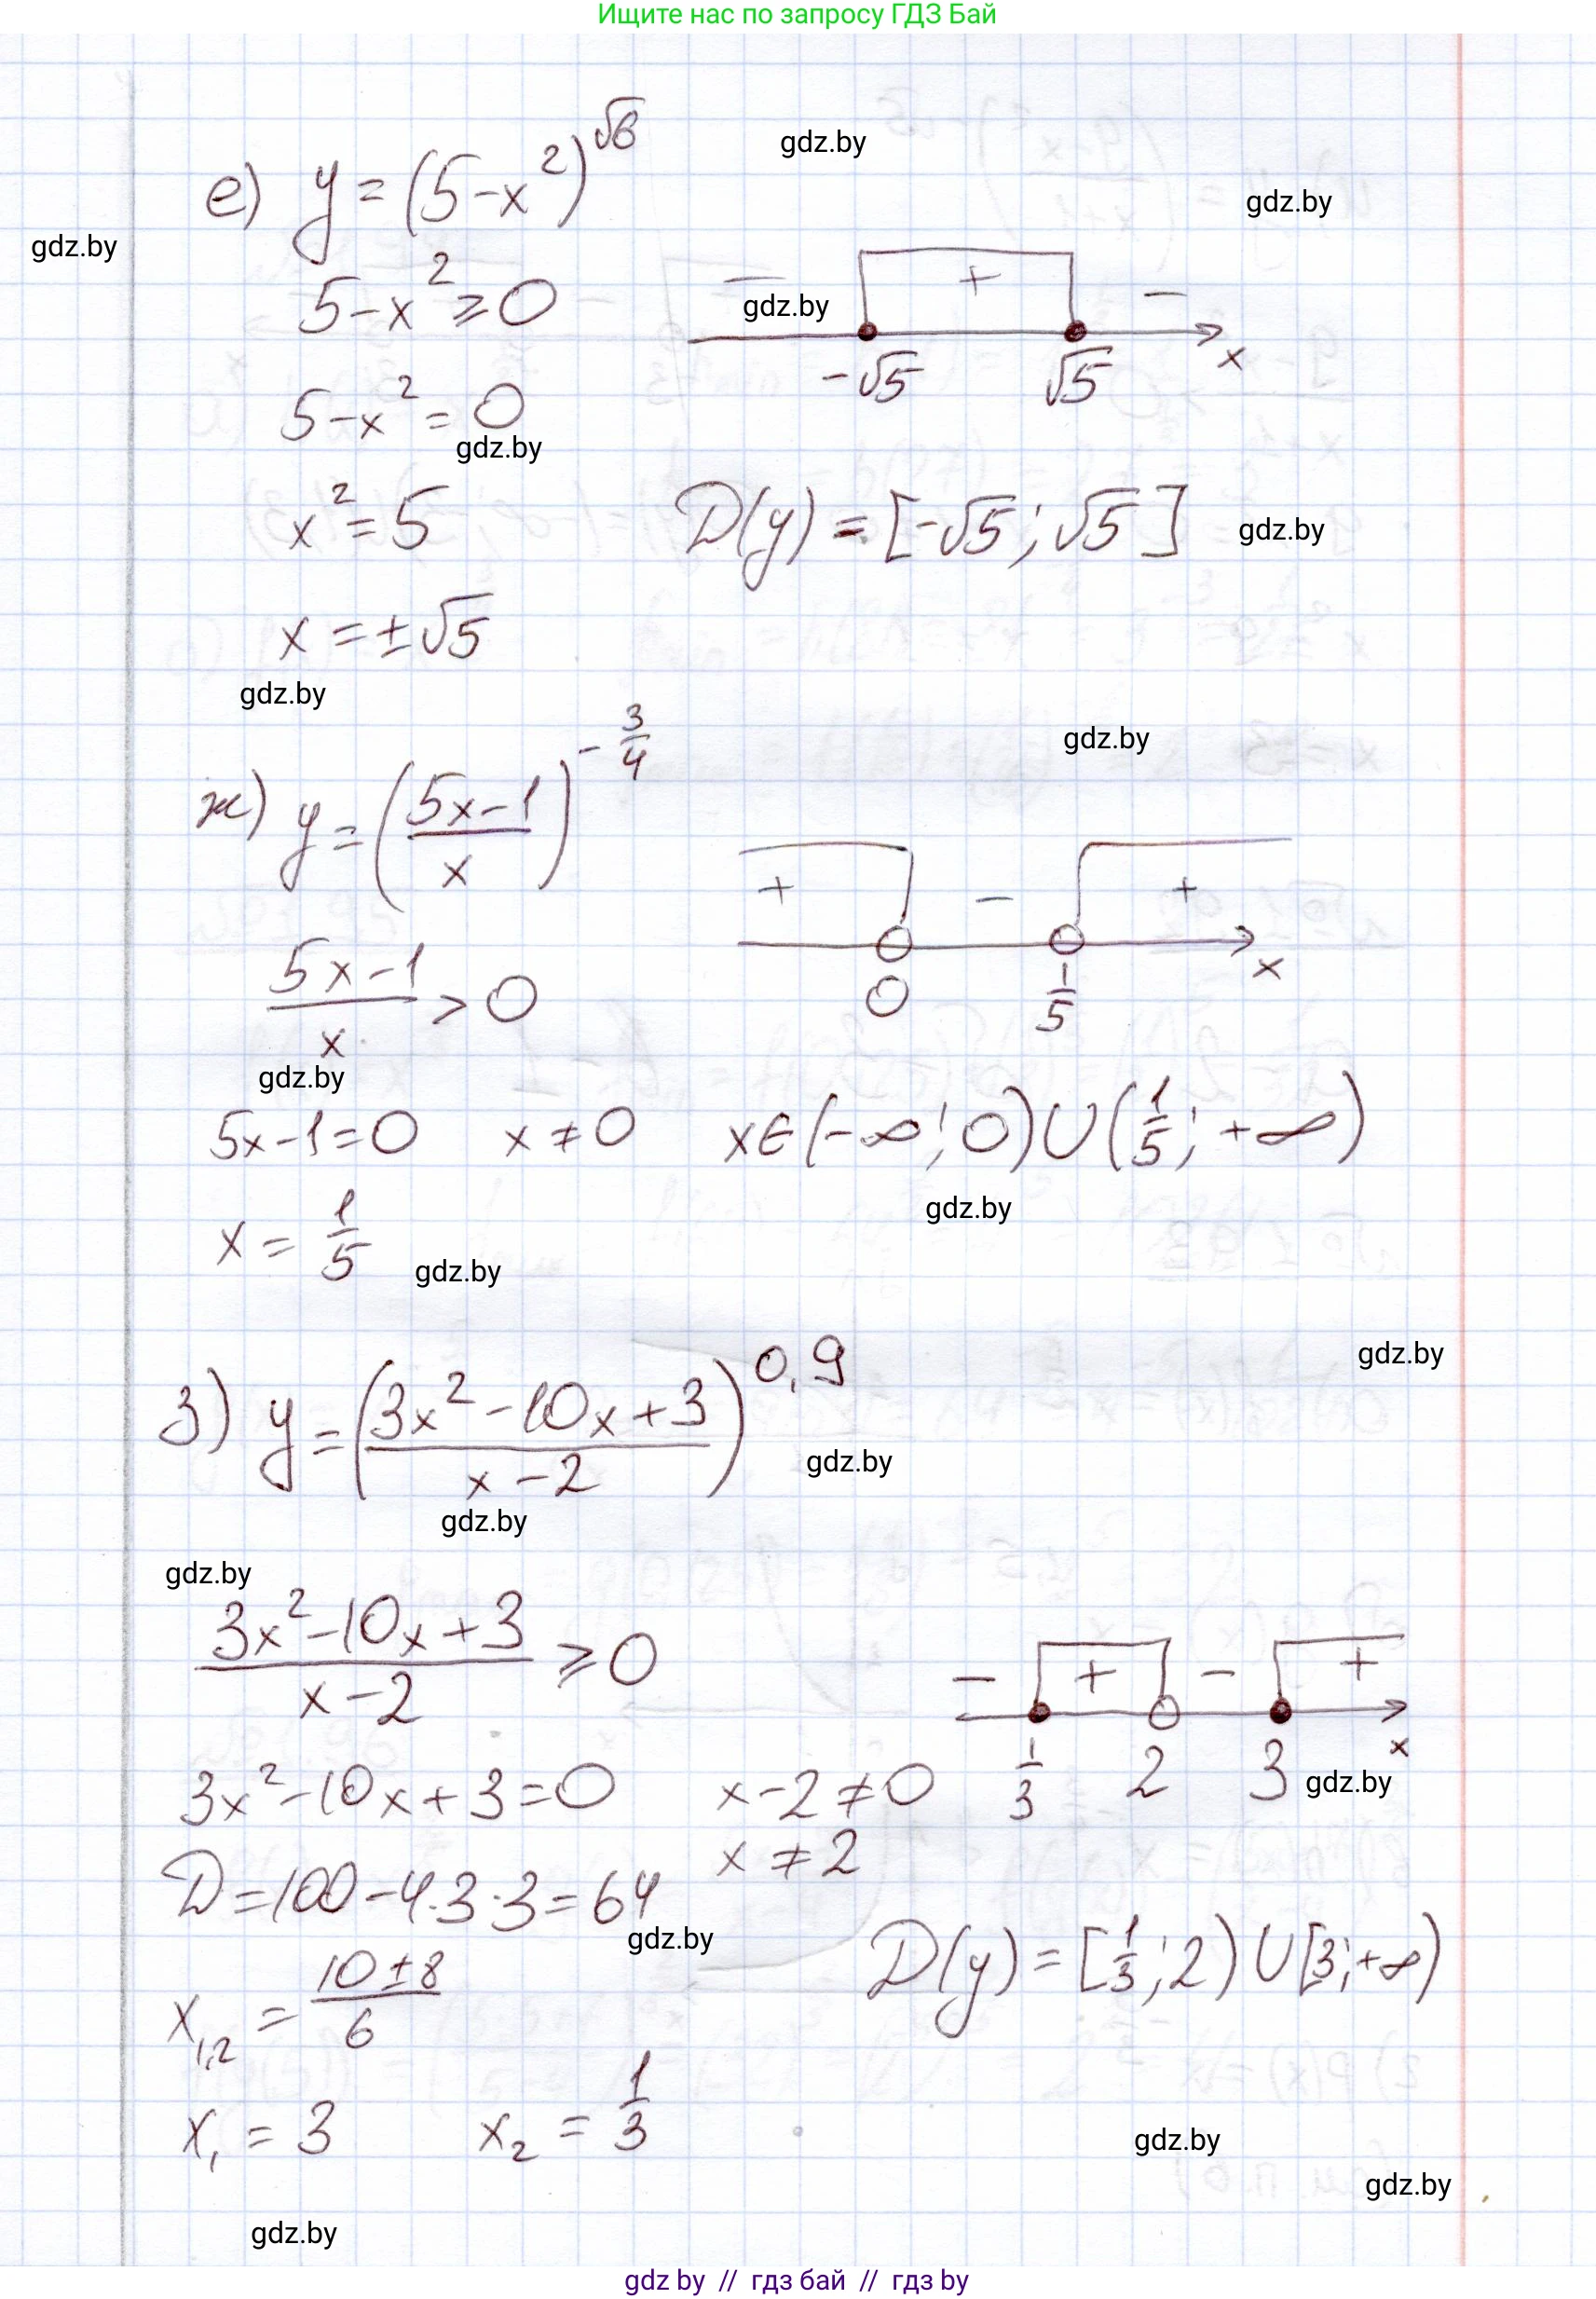 Ищите нас по запросу ГДЗ Бай
е) y = (5-x²)^√6
gdz.by
gdz.by
gdz.by
5-x² ⩾ 0
- + -
gdz.by
-√5 √5 x
5-x² = 0
gdz.by
x² = 5
D(y) = [-√5; √5]
gdz.by
x = ±√5
gdz.by
ж) y = ((5x-1)/x)^(-3/4)
gdz.by
+ - +
(5x-1)/x > 0
0 1/5 x
gdz.by
5x-1=0 x ≠ 0 x∈(-∞; 0)∪(1/5; +∞)
gdz.by
x = 1/5
gdz.by
gdz.by
з) y = ((3x²-10x+3)/(x-2))^0,9
gdz.by
gdz.by
gdz.by
(3x²-10x+3)/(x-2) ⩾ 0
- + - +
1/3 2 3 x
gdz.by
3x²-10x+3=0 x-2≠0
x ≠ 2
D=100-4·3·3=64
gdz.by
D(y) = [1/3; 2) ∪ [3; +∞)
x₁,₂ = (10±8)/6
x₁ = 3 x₂ = 1/3
gdz.by
gdz.by
gdz.by
gdz by // гдз бай // гдз by